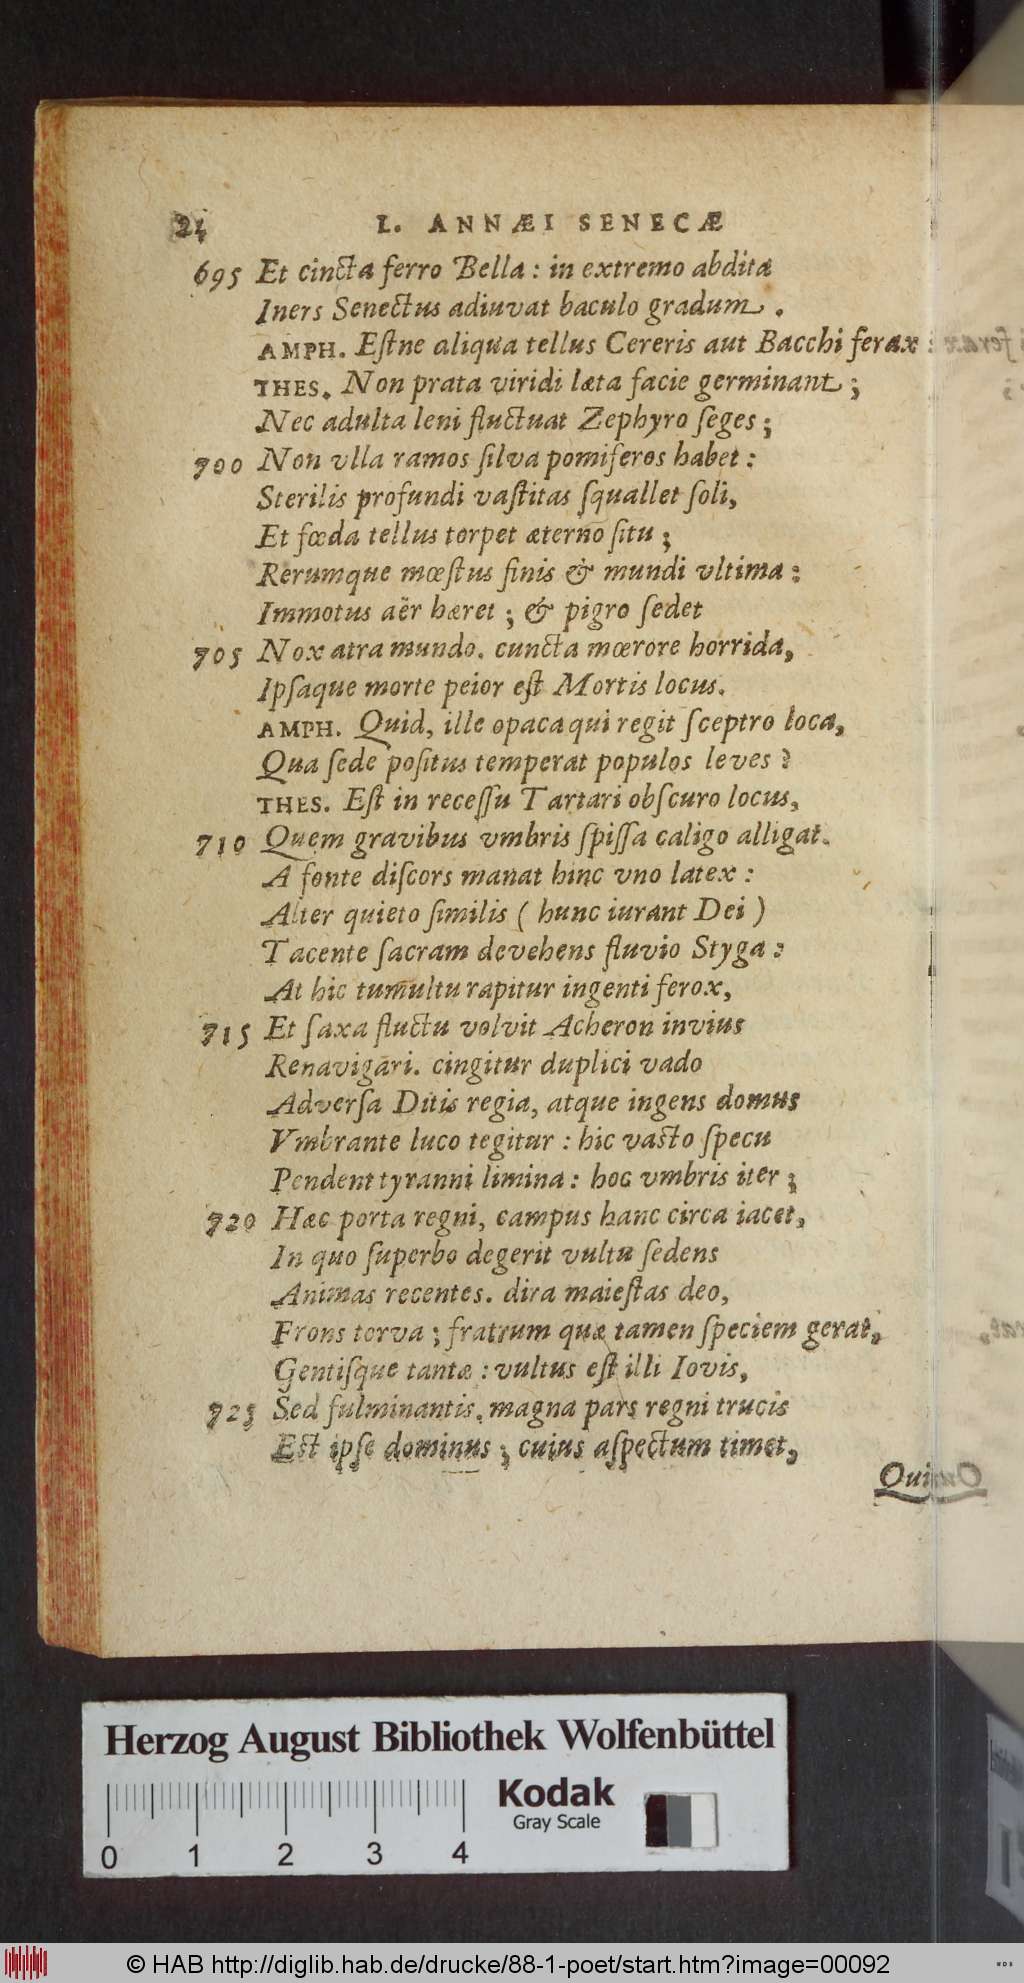 24 L. ANNÆI SENECÆ
695 Et cincta ferro Bella : in extremo abdita
Iners Senectus adiuvat baculo gradum.
AMPH. Estne aliqua tellus Cereris aut Bacchi ferax :
THES. Non prata viridi læta facie germinant ;
Nec adulta leni fluctuat Zephyro ſeges ;
700 Non vlla ramos ſilva pomiferos habet :
Sterilis profundi vaſtitas ſquallet ſoli,
Et fœda tellus torpet æterno ſitu ;
Rerumque mœſtus finis & mundi vltima :
Immotus aër hæret ; & pigro ſedet
705 Nox atra mundo. cuncta mœrore horrida,
Ipſaque morte peior eſt Mortis locus.
AMPH. Quid, ille opaca qui regit ſceptro loca,
Qua ſede poſitus temperat populos leves ?
THES. Eſt in receſſu Tartari obſcuro locus,
710 Quem gravibus vmbris ſpiſſa caligo alligat.
A fonte diſcors manat hinc vno latex :
Alter quieto ſimilis ( hunc iurant Dei )
Tacente ſacram devehens fluvio Styga :
At hic tumultu rapitur ingenti ferox,
715 Et ſaxa fluctu volvit Acheron invius
Renavigari. cingitur duplici vado
Adverſa Ditis regia, atque ingens domus
Vmbrante luco tegitur : hic vaſto ſpecu
Pendent tyranni limina : hoc vmbris iter ;
720 Hæc porta regni, campus hanc circa iacet,
In quo ſuperbo degerit vultu ſedens
Animas recentes. dira maieſtas deo,
Frons torva ; fratrum quæ tamen ſpeciem gerat,
Gentiſque tantæ : vultus eſt illi Iovis,
725 Sed fulminantis. magna pars regni trucis
Eſt ipſe dominus ; cuius aſpectum timet,
Herzog August Bibliothek Wolfenbüttel
Kodak
Gray Scale
0 1 2 3 4
© HAB http://diglib.hab.de/drucke/88-1-poet/start.htm?image=00092